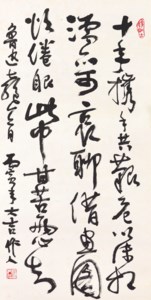 十年攜手共艱危以沫相
濡亦可哀聊借畫圖
怡倦眼此中甘苦兩心知
魯迅